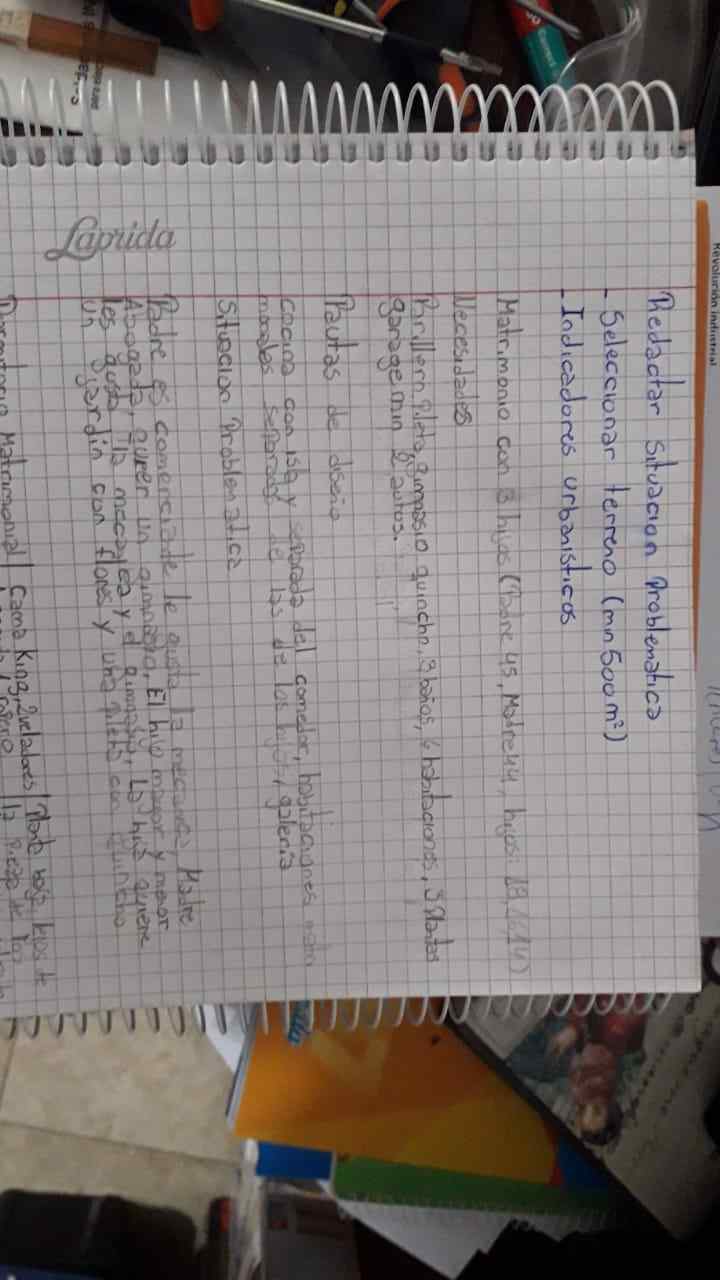 Revolucion industrial
Redactar Situacion Problematica
- Seleccionar terreno (min 500m²)
- Indicadores urbanisticos
Matrimonio con 3 hijos (Padre 45, Madre 44, hijos: 18, 16, 14)
Necesidades
Parillero, Pileta, gimnasio quincho, 3 baños, 6 habitaciones, 3 Plantas
garage min 2 autos.
Pautas de diseño
Cocina con isla y separada del comedor, habitaciones matri
moniales separadas de las de los hijos, galeria
Situacion Problematica
Padre es comerciante le gusta la mecanica, Madre
Abogada, quieren un gimnasio, El hijo mayor y menor
les gusta la mecanica y el gimnasio, La hija quiere
un jardin con flores y una pileta con quincho
Dormitorio Matrimonial / Cama King, 2 veladores / Planta baja, lejos de
la pieza de los
Laprida